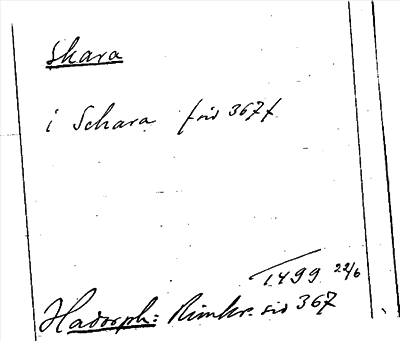 Skara
i Schara (sid 367).
1499 22/6
Hadorph: Rimkr. sid 367